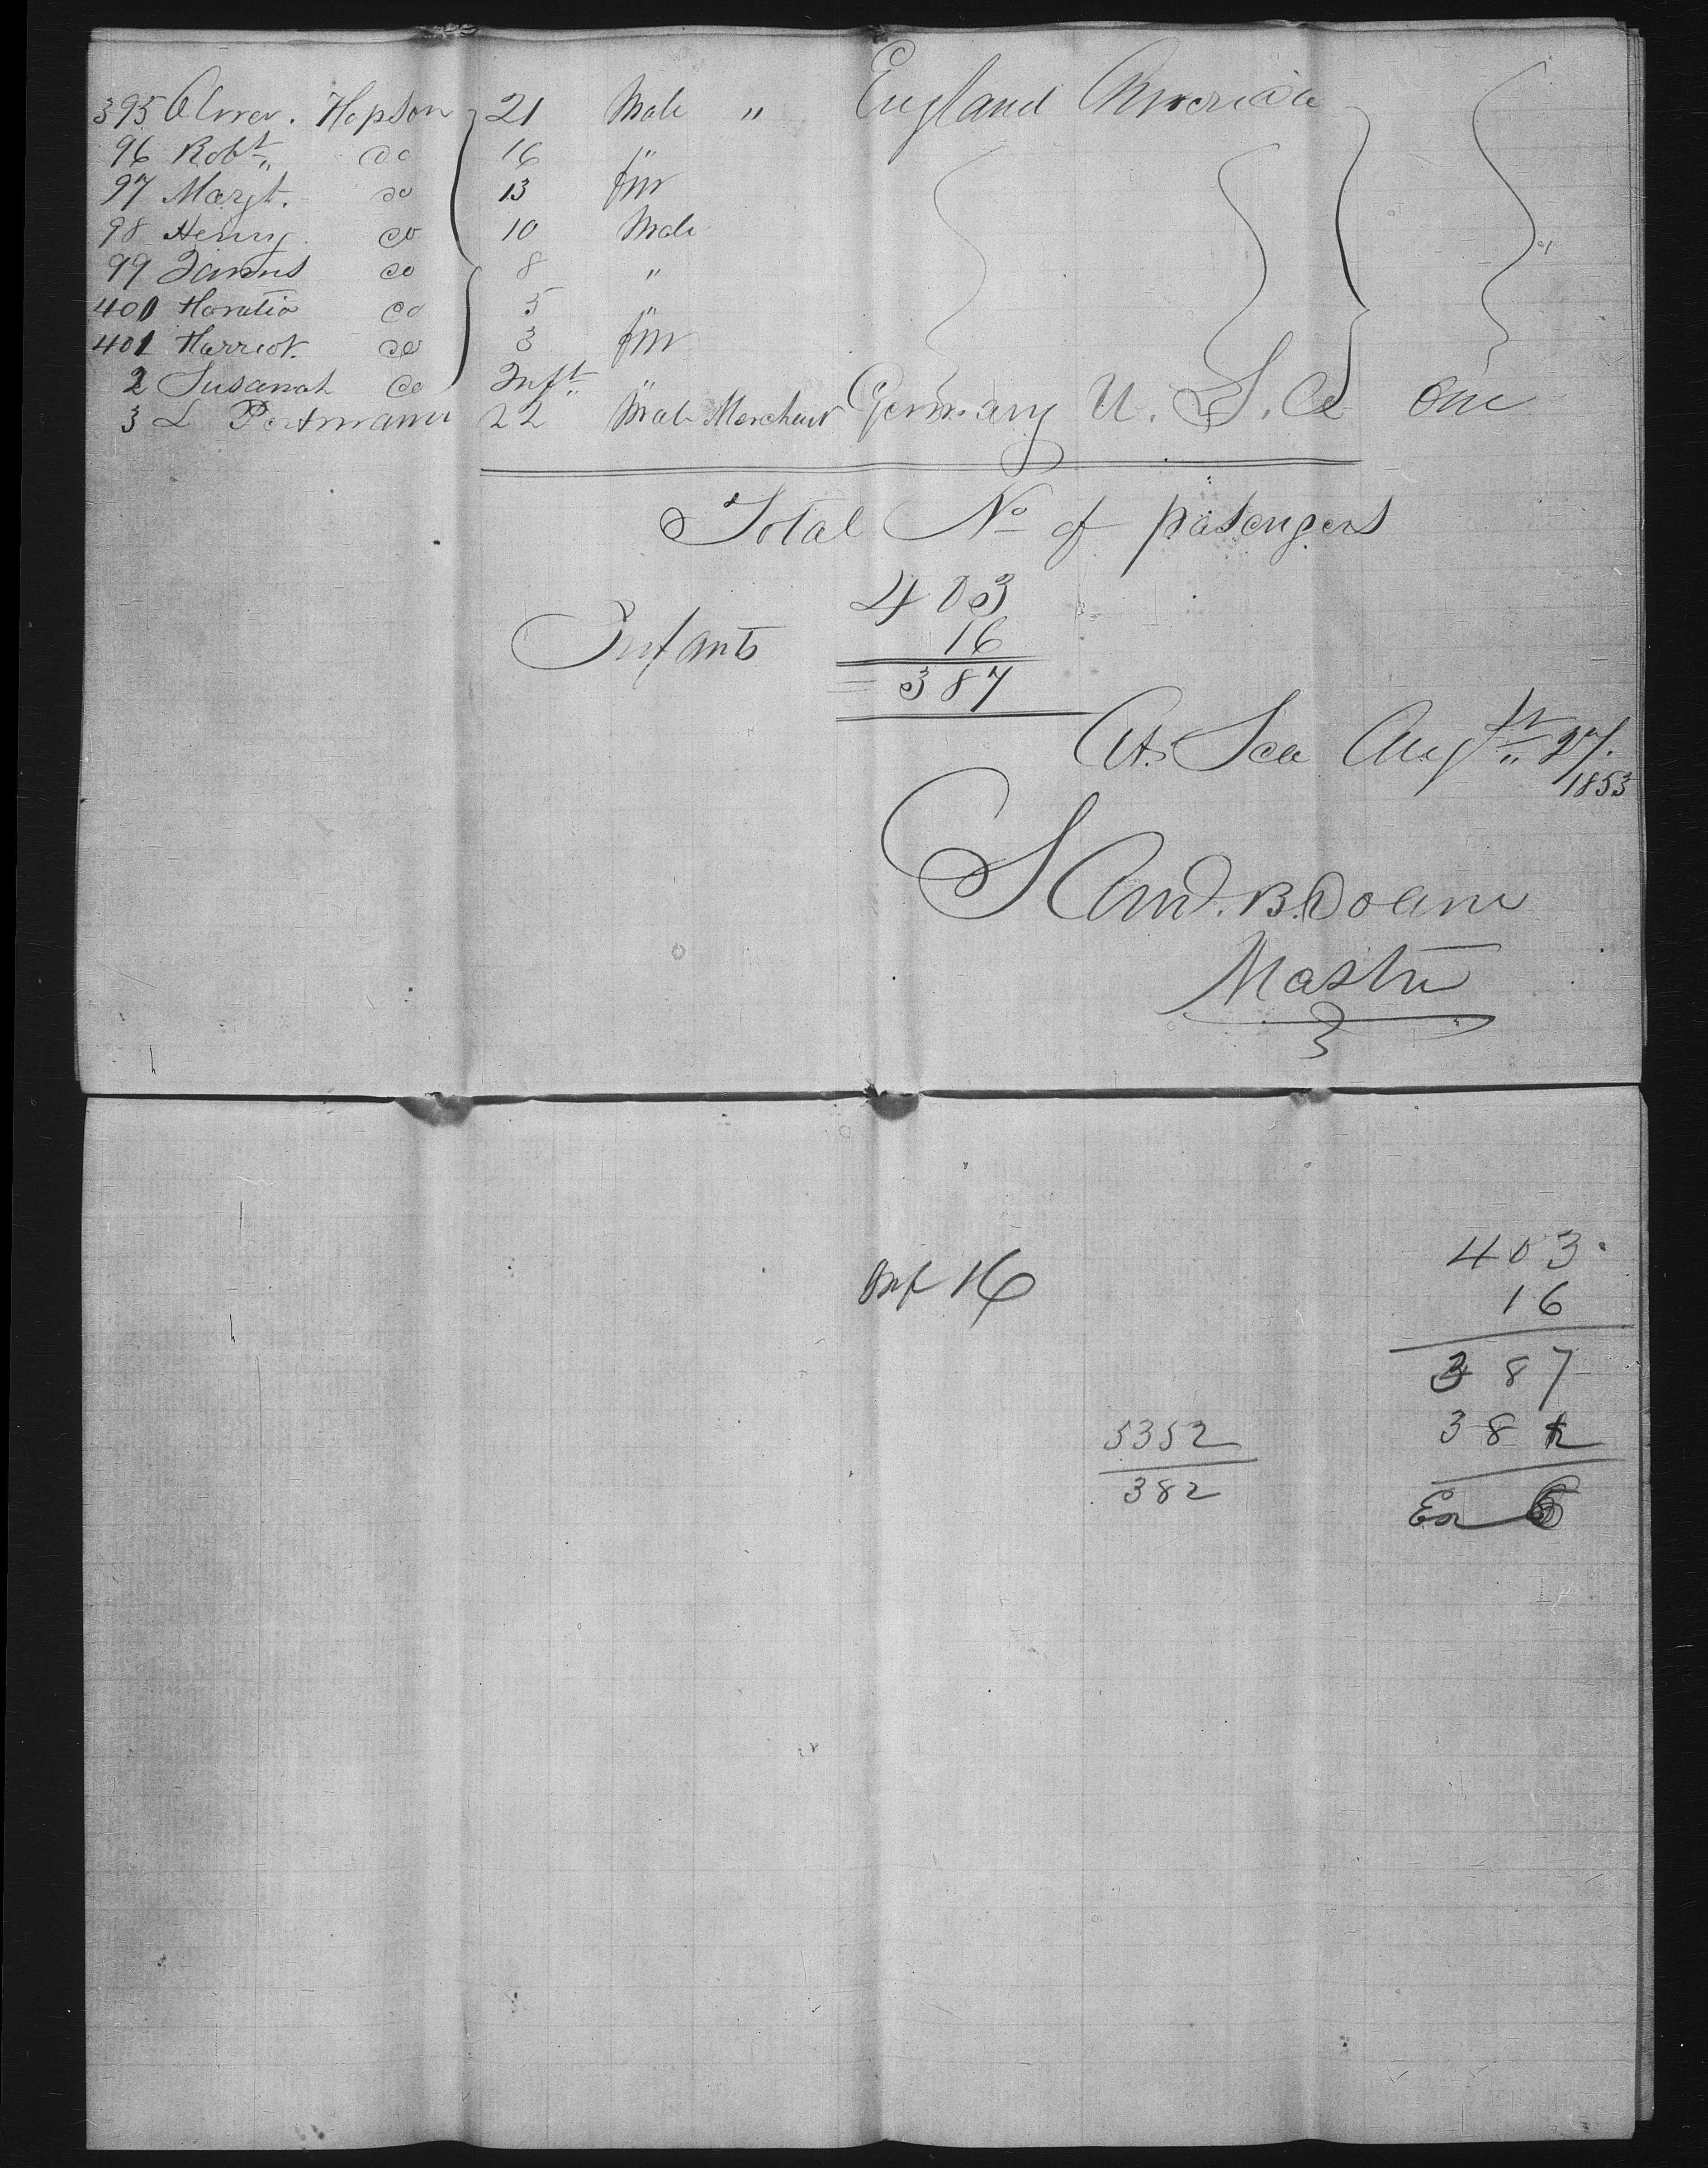 395 Hopson 21 Male " England America
96 Robt. do 16 "
97 Margt. do 13 fm
98 Henry do 10 Male
99 James do 8 "
400 Horatio do 5 "
401 Harriot. do 3 fm
2 Susanah do Inft. "
3 L Portmann 22 Male Merchant Germany U. S. A One
Total No of pasengers
403
Infants 16
387
At Sea Augst. 27.
1853
B. Doane
Master
403
Inf 16
16
387
382
5352
382